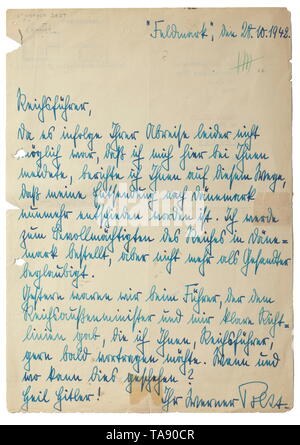 "Feldmark", den 28.10.1942.
Reichsführer,
da es infolge Ihrer Abreise leider nicht
möglich war, daß ich mich hier bei Ihnen
meldete, berichte ich Ihnen auf diesem Wege,
daß meine Entsendung nach Dänemark
nunmehr entschieden worden ist. Ich werde
zum Bevollmächtigten des Reiches in Däne-
mark bestellt, aber nicht mehr als Gesandter
beglaubigt.
Gestern waren wir beim Führer, der dem
Reichsaußenminister und mir klare Richt-
linien gab, die ich Ihnen, Reichsführer,
gern bald vortragen möchte. Wann und
wo kann dies geschehen?
Heil Hitler!
Ihr Werner Best.
alamy
alamy
Image ID: TA90CR
www.alamy.com